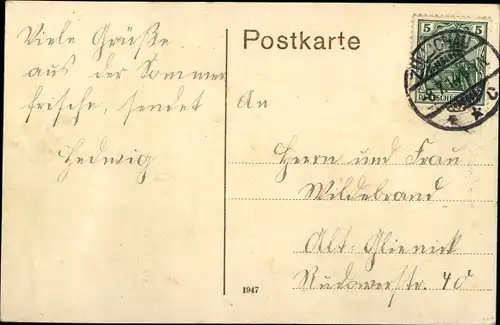 Viele Grüße
aus der Sommer
frische, sendet
Hedwig
Postkarte
An
Herrn und Frau
Wildebrand
Alt-Glienick
Rudowerstr. 40
1947
5 5
C